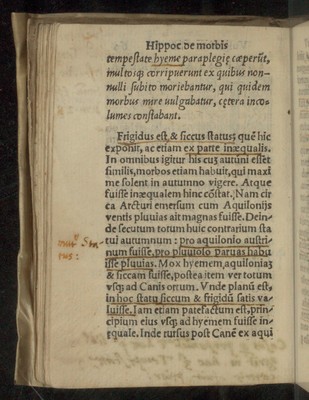 Hippoc de morbis
tempestate hyeme paraplegię cæperũt,
multosqȝ corripuerunt ex quibus non-
nulli subito moriebantur, qui quidem
morbus mire uulgubatur, cętera inco-
lumes constabant.
Frigidus est & siccus status quẽ hic
exponit, ac etiam ex parte inæqualis.
In omnibus igitur his cuȝ autũni esset
similis, morbos etiam habuit, qui maxi
me solent in autumno vigere. Atque
fuisse inæqualem hinc cõstat. Nam cir
ca Arcturi emersum cum Aquilonijs
ventis pluuias ait magnas fuisse. Dein-
de secutum totum huic contrarium sta
tui autumnum : pro aquilonio austri-
num fuisse, pro pluuioso paruas habu
isse pluuias. Mox hyemem, aquiloniaȝ
& siccam fuisse, postea item ver totum
vsqȝ ad Canis ortum. Vnde planũ est,
in hoc statu siccum & frigidũ satis va-
luisse. Iam etiam patefactum est, prin-
cipium eius vsqȝ ad hyemem fuisse in-
equale. Inde rursus post Canẽ ex aqui